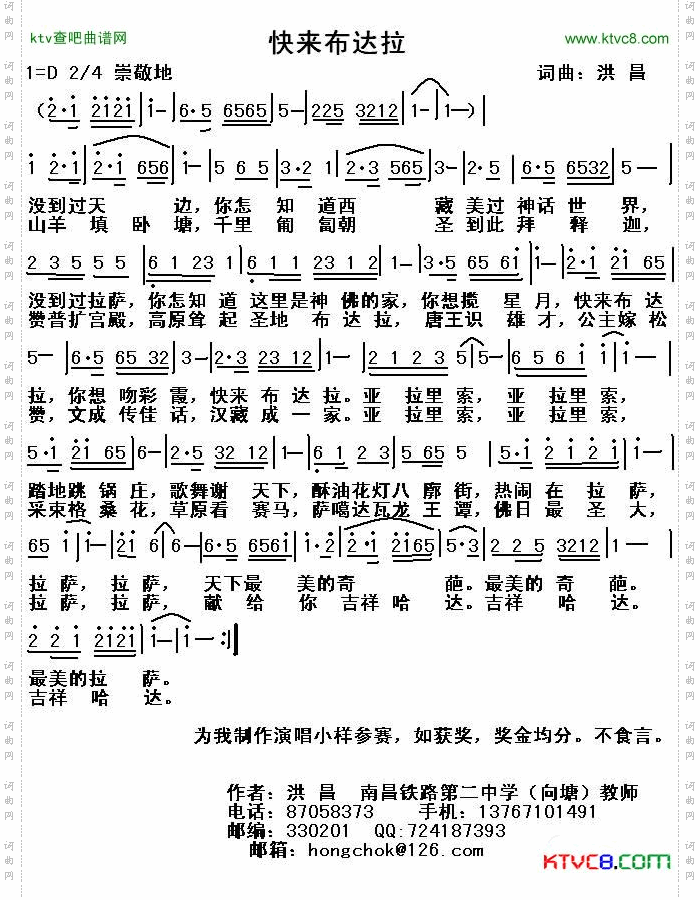 ktv查吧曲谱网
快来布达拉
www.ktvc8.com
1=D 2/4 崇敬地
词曲：洪 昌
（2·1 2121 1— 6·5 6565 5— 225 3212 1— 1—）
1 2·1 2·1 656 1— 5 6 5 3·2 1 2·3 565 3— 2·5 6·5 6532 5—
没到过天 边，你怎 知 道西 藏 美过 神话 世 界，
山羊 填 卧 塘，千里 匍 匐朝 圣 到此 拜 释 迦，
2 3 5 5 5 6 1 23 1 6·1 1 2 23 1 2 1— 3·5 65 61 1— 2·1 21 65
没到过拉萨，你怎知 道 这里是神 佛的家，你想揽 星 月，快来布 达
赞普扩宫殿，高原耸 起 圣地 布 达 拉，唐王识 雄 才，公主嫁 松
5— 6·5 65 32 3— 2·3 23 5 1— 2 1 2 3 5 5— 6 5 6 1 1 1—
拉，你想 吻彩 霞，快来 布 达 拉。亚 拉里 索，亚 拉里 索，
赞，文成 传佳 话，汉藏 成 一 家。亚 拉里 索，亚 拉里 索，
5·1 21 65 6— 2·5 32 12 1— 6 1 2 3 5 65 5 5·1 2 1 2 5
踏地跳 锅 庄，歌舞谢 天下，酥油花灯八 廓 街，热闹 在 拉 萨，
采束格 桑 花，草原看 赛马，萨噶达瓦龙 王 潭，佛日 最 圣 大，
65 1 1— 21 6 6— 6·5 6561 1·2 2·1 2165 5·3 2 2 5 3212 1—
拉 萨，拉 萨， 天下最 美的奇 葩。最美的 奇 葩。
拉 萨，拉萨， 献 给 你 吉祥 哈 达。吉祥 哈 达。
2 2 1 2121 1— 1—
最美的拉 萨。
吉祥 哈 达。
为我制作演唱小样参赛，如获奖，奖金均分。不食言。
作者：洪 昌 南昌铁路第二中学（向塘）教师
电话：87058373 手机：13767101491
邮编：330201 QQ:724187393
邮箱：hongchok@126.com
KTVC8.COM
词曲网